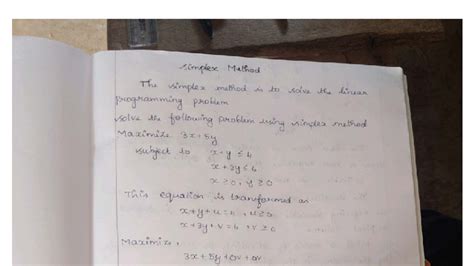 Simplex Method
The simplex method is to solve the linear
programming problem
solve the following problem using simplex method
Maximize 3x+5y
subject to x+y ≤ 4
x+3y ≤ 6
x ≥ 0, y ≥ 0
This equation is transformed as
x+y+u=4, u≥0
x+3y+v=6, v≥0
Maximize,
3x+5y+0u+0v